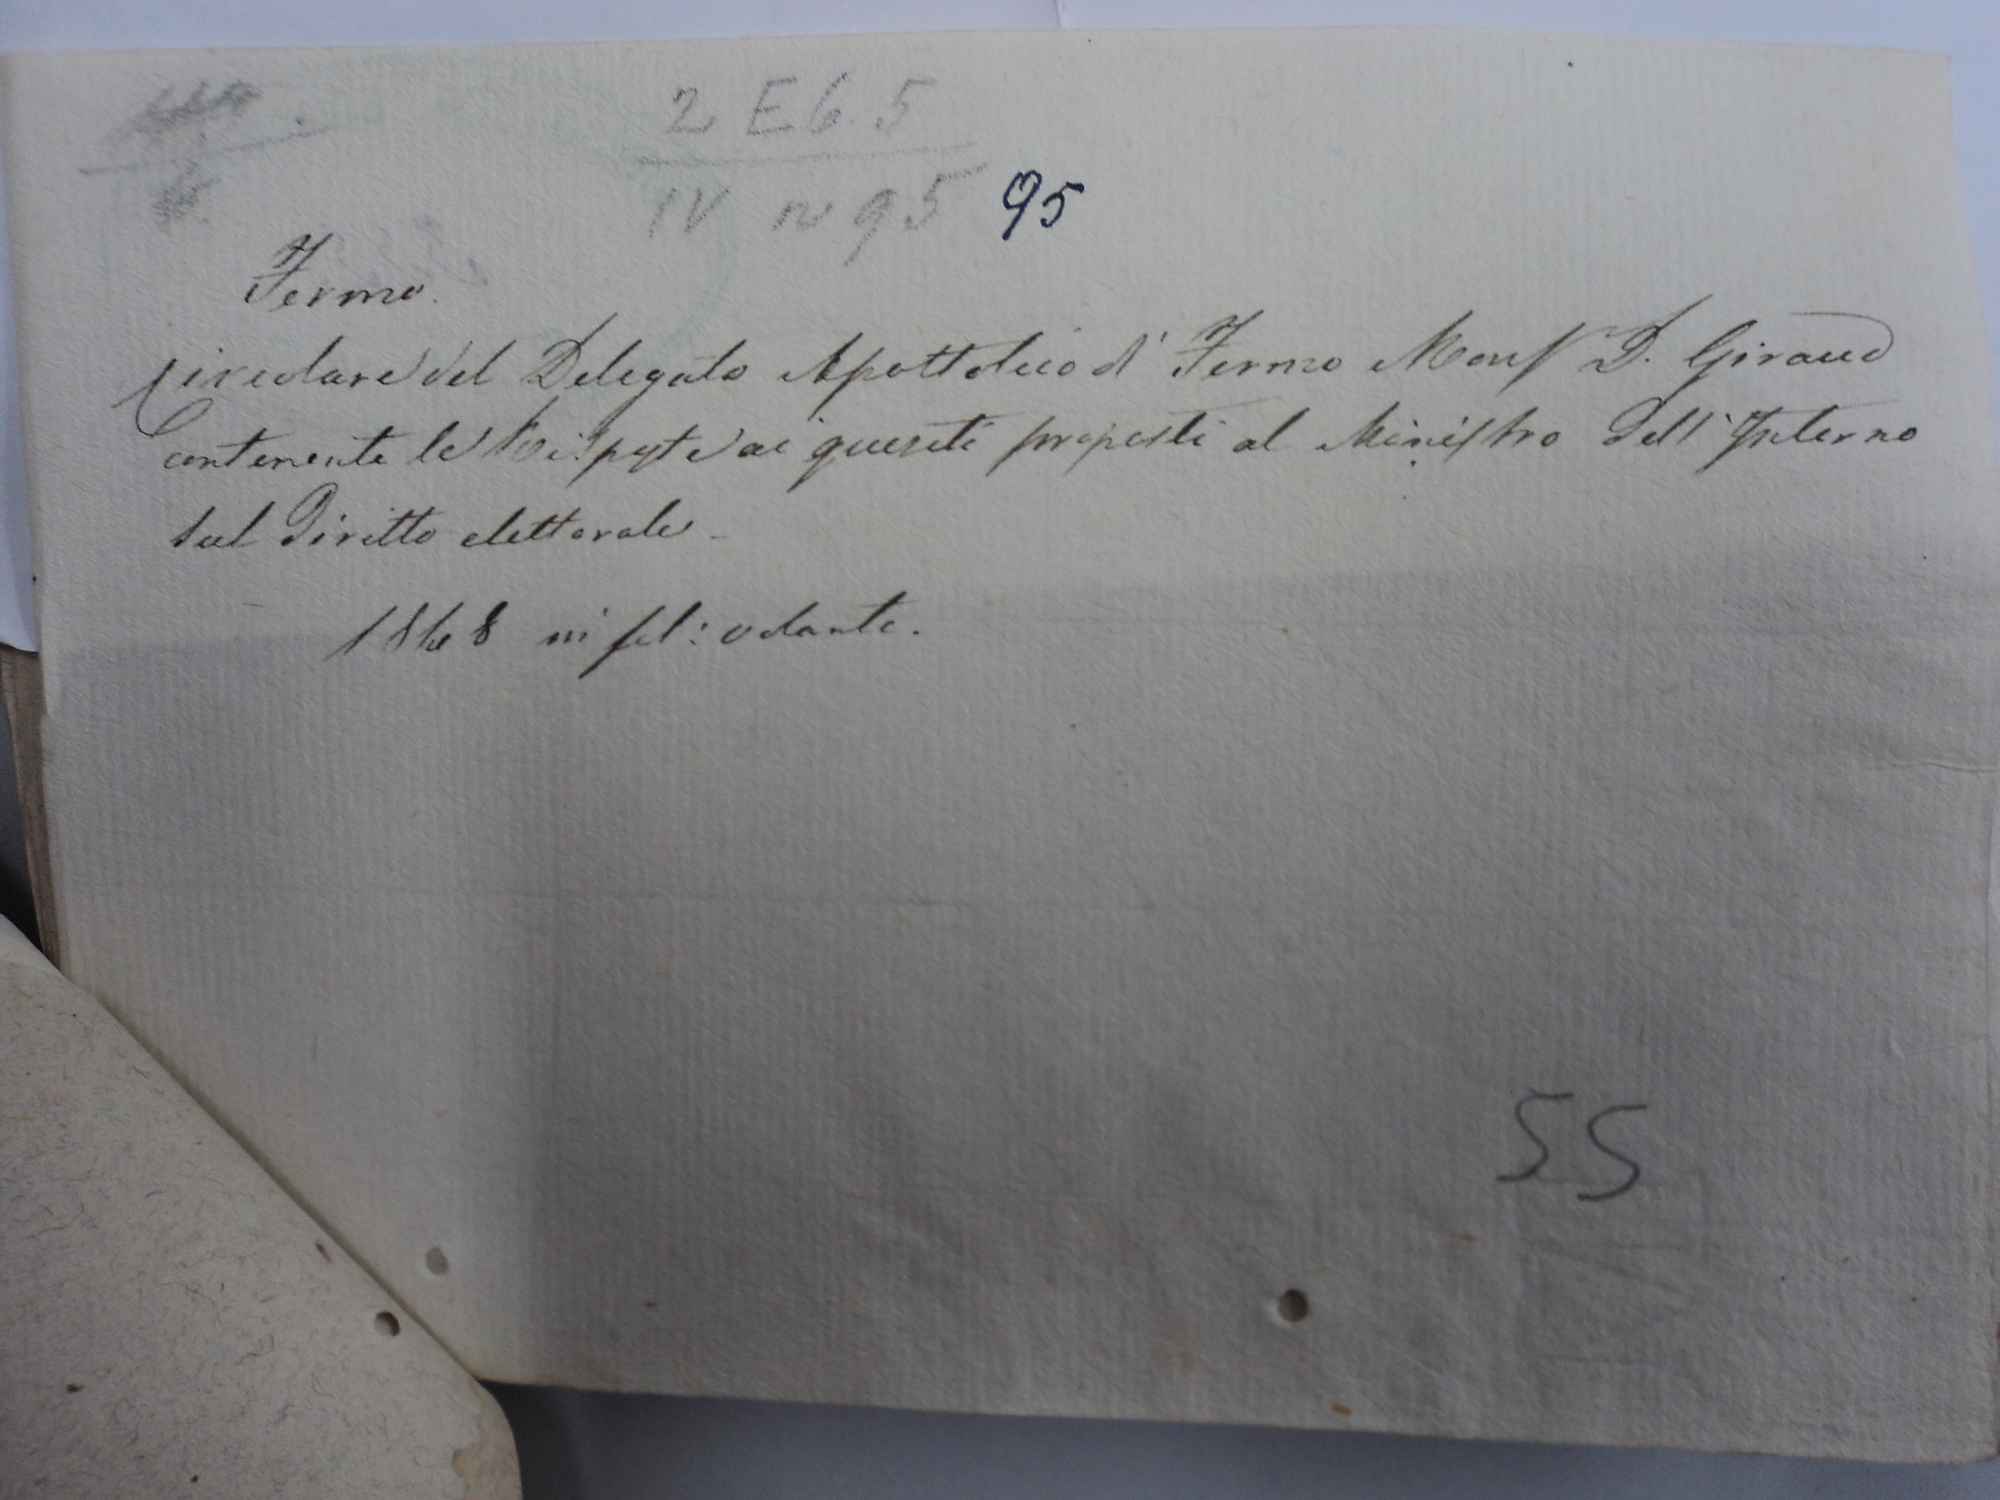 2 E 6. 5
IV n 95 95
Fermo.
Circolare del Delegato Apostolico di Fermo Mons D. Giraud
contenente le Risposte ai quesiti proposti al Ministro dell'Interno
sul Diritto elettorale
1848 in fol: volante.
55